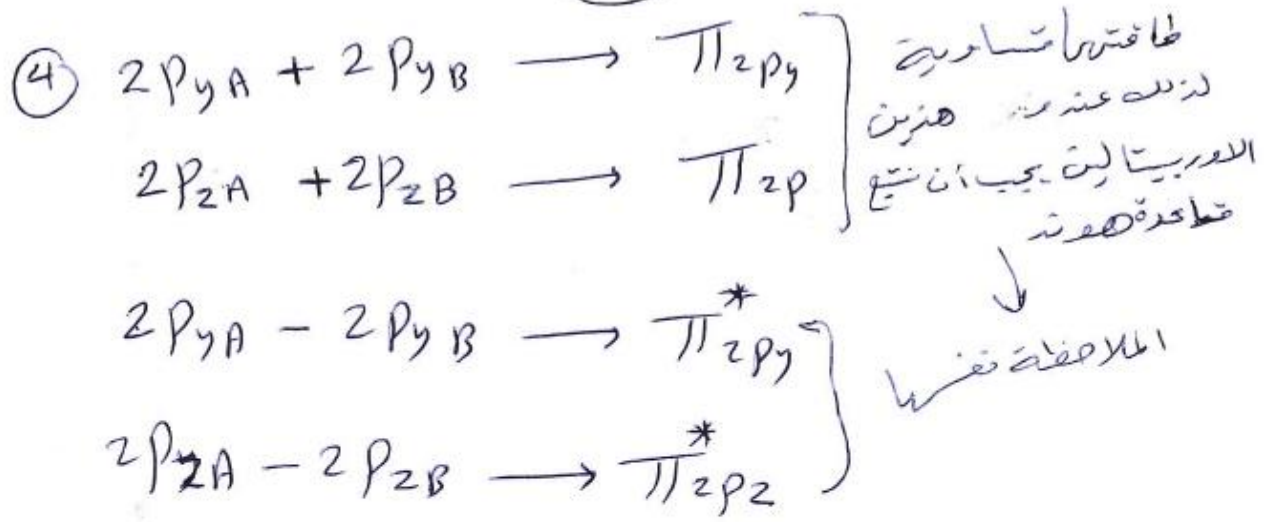 ④ 2PyA + 2PyB ⟶ π2Py
2PzA + 2PzB ⟶ π2P
طاقتهما متساوية
لذلك عند هذين
الاوربيتالين يجب أن نتبع
قاعدة هوند
2PyA − 2PyB ⟶ π*2Py
2PzA − 2PzB ⟶ π*2Pz
الملاحظة نفسها